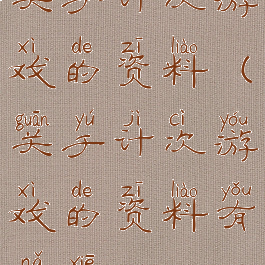 xì de zī liào
戏的资料（
guān yú jì cì yóu
关于计次游
xì de zī liào yǒu
戏的资料有
nǎ xiē